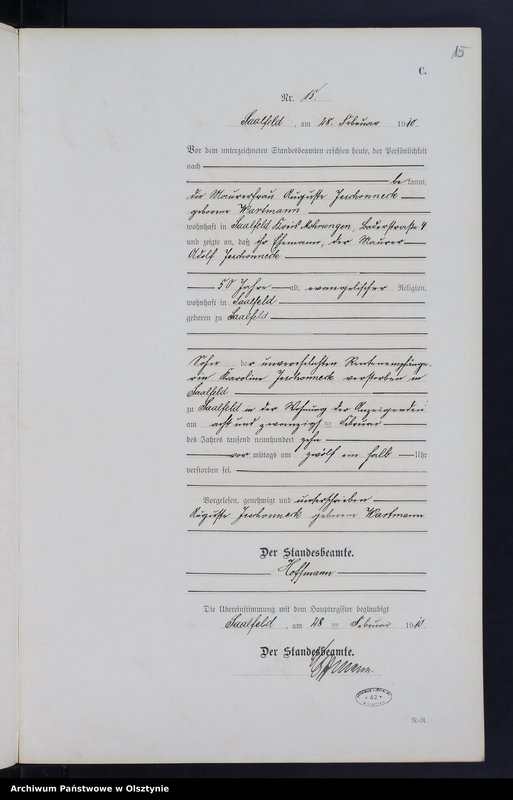 15
C.
Nr. 15.
Saalfeld, am 28. Februar 1910.
Vor dem unterzeichneten Standesbeamten erschien heute, der Persönlichkeit
nach
bekannt,
die Maurerfrau Auguste Jeschonneck
geborene Wartmann
wohnhaft in Saalfeld Kreis Mohrungen, Baderstraße 4
und zeigte an, daß ihr Ehemann, der Maurer
Adolf Jeschonneck
50 Jahre alt, evangelischer Religion,
wohnhaft in Saalfeld
geboren zu Saalfeld
Sohn der unverehelichten Rentenempfänge-
rin Karoline Jeschonneck verstorben in
Saalfeld
zu Saalfeld in der Wohnung der Anzeigenden
am acht und zwanzigsten Februar
des Jahres tausend neunhundert zehn
vor mittags um zwölf ein halb Uhr
verstorben sei.
Vorgelesen, genehmigt und unterschrieben
Auguste Jeschonneck geborene Wartmann
Der Standesbeamte.
Hoffmann
Die Übereinstimmung mit dem Hauptregister beglaubigt
Saalfeld, am 28 ten Februar 1910.
Der Standesbeamte.
Hoffmann.
* 42 *
Archiwum Państwowe w Olsztynie